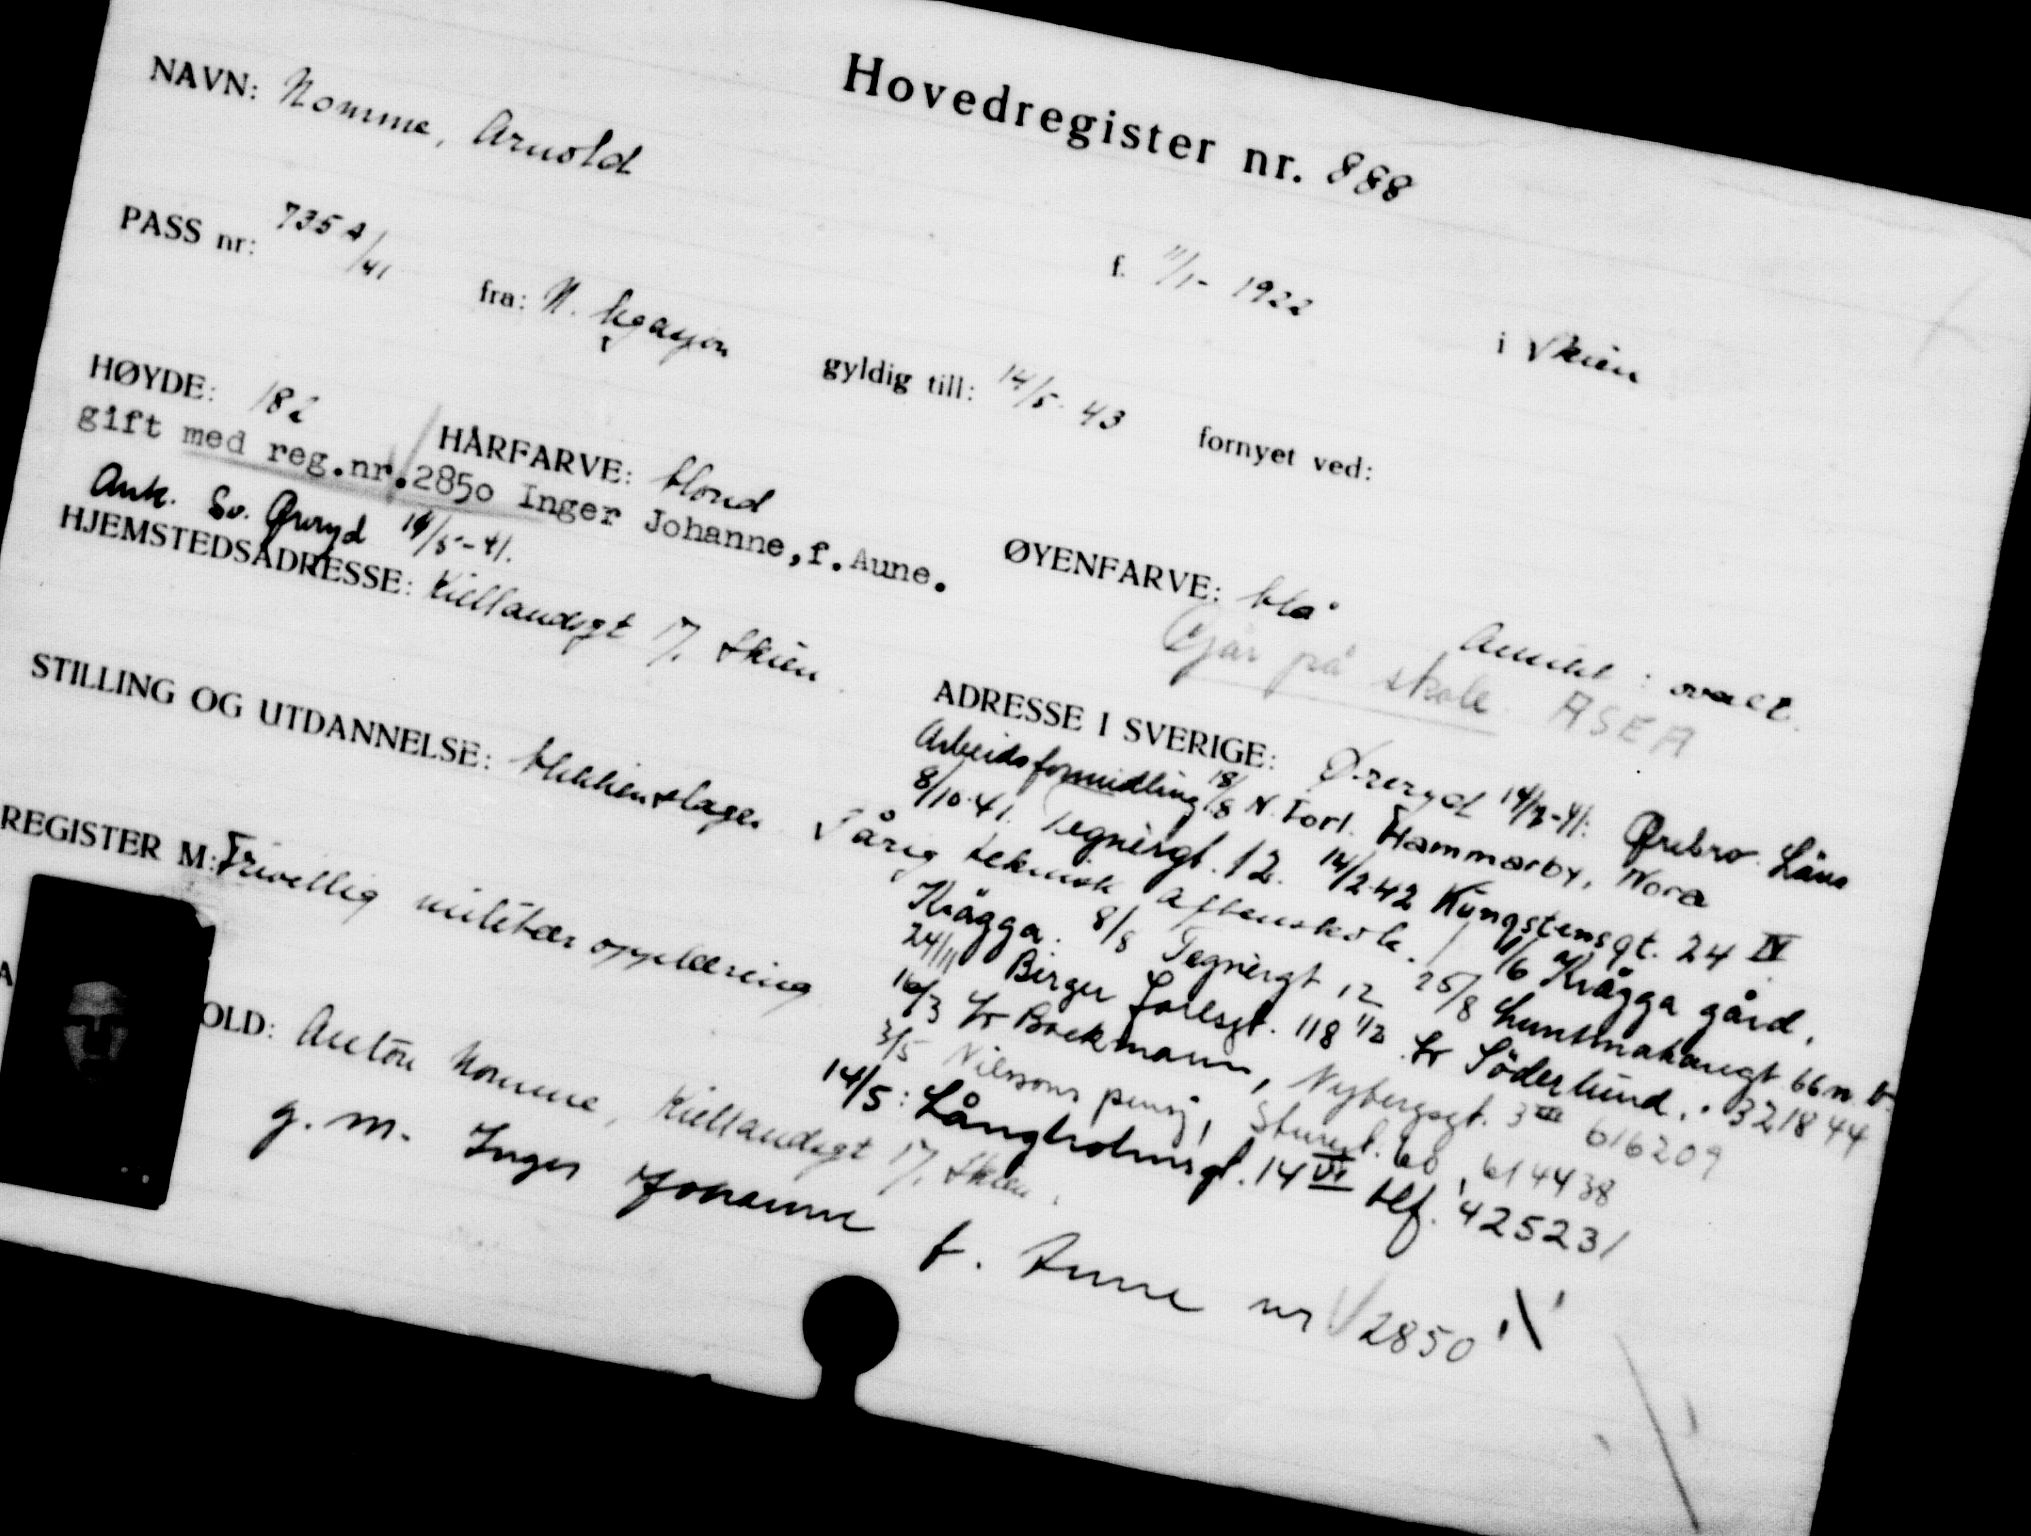 Hovedregister nr. 888
NAVN: Nomme, Arnold
f. 11/1- 1922
i Skien
PASS nr: 735 A/41
fra: N. Legasjon
gyldig till: 14/5- 43
fornyet ved:
HØYDE: 182
HÅRFARVE: blond
ØYENFARVE: blå
Ansikt: ovalt.
gift med reg.nr.2850 Inger Johanne,f.Aune.
Går på skole ASEA
Ank. Sv. Øreryd 14/5-41.
HJEMSTEDSADRESSE: Kiellandsgt 17. Skien
ADRESSE I SVERIGE: Øreryd 14/8-41: Ørebro Läns
Arbeidsformidling 18/8 N. Torl. Hammarby, Nora
8/10-41. Tegnérgt. 12. 14/2-42 Kungstensgt. 24 IV
STILLING OG UTDANNELSE: blikkenslager årig teknisk aftenskole.
1/6 Krägga gård,
Krägga. 8/8 Tegnérgt 12 25/8 66 n.b.
24/11 Birger Jarlsgt. 118 1/2 Söderlund. 321844
REGISTER M: Frivillig militær opplæring
16/3 Brekmann, Nybergsgt. 3 616209
3/5 Nilssons pensj, Sturegt. 60, 614438
14/5: Långholmsgt. 14 VI tlf. 425231
OLD: Anton Nomme, Kiellandsgt 17. Skien.
g. m. Inger Johanne f. Aune nr 2850